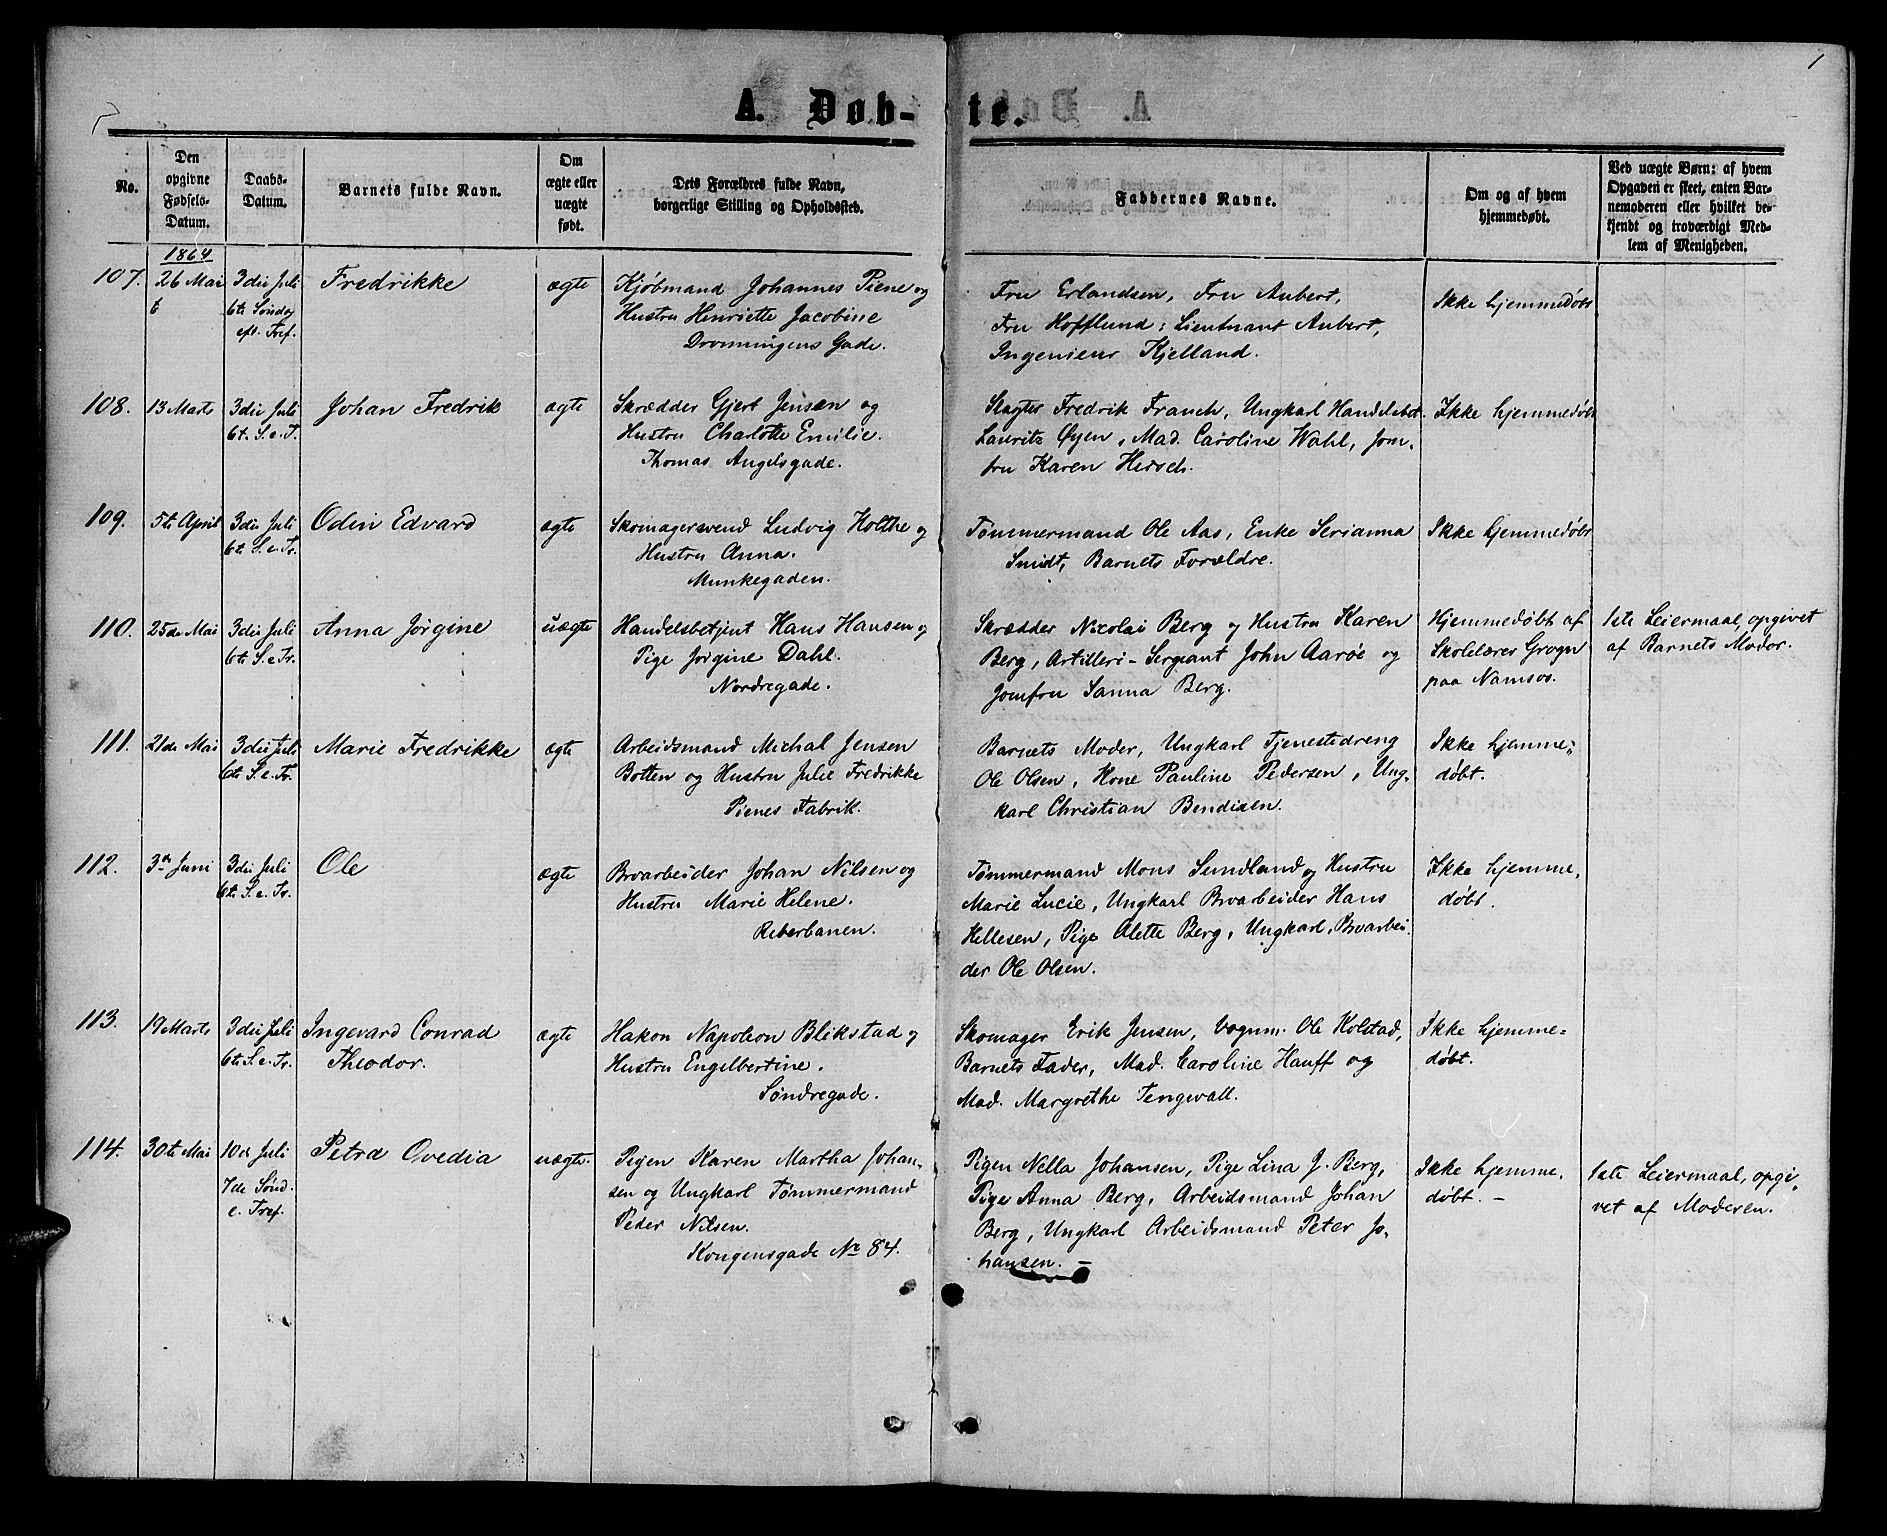 1
A. Døb-
te.
No.
Den
opgivne
Fødsels-
Datum.
Daabs-
Datum.
Barnets fulde Navn.
Om
ægte eller
uægte
født.
Dets Forældres fulde Navn,
borgerlige Stilling og Opholdssted.
Faddernes Navne.
Om og af hvem
hjemmedøbt.
Ved uægte Børn: af hvem
Opgaven er skeet, enten Bar-
nemoderen eller hvilket be-
kjendt og troværdigt Med-
lem af Menigheden.
1864
107.
26 Mai
3die Juli
6te Søndag
eft. Tref.
Fredrikke
ægte
Kjøbmand Johannes Piene og
Hustru Henriette Jacobine
Dronningens Gade.
Fru Erlandsen, Fru Aubert,
Fru Hofflund: Lieutnant Aubert,
Ingenieur Kjelland.
Ikke hjemmedøbt
108.
13 Marts
3die Juli
6t. S. e. T.
Johan Fredrik
ægte
Skrædder Gjert Jensen og
Hustru Charlotte Emilie.
Thomas Angelsgade.
Slagter Fredrik Franch, Ungkarl Handelsbet.
Lauritz Øyen, Mad. Caroline Wahl, Jom-
fru Karen Hirsch.
Ikke hjemmedøbt
109.
5te April
3die Juli
6t. S. e. Tr.
Odin Edvard
ægte
Skomagersvend Ludvig Holthe og
Hustru Anna.
Munkegaden.
Tømmermand Ole Aas, Enke Serianna
Smidt, Barnets Forældre.
Ikke hjemmedøbt
110.
25de Mai
3die Juli
6t. S. e. Tr.
Anna Jørgine
uægte
Handelsbetjent Hans Hansen og
Pige Jørgine Dahl.
Nordregade.
Skrædder Nicolai Berg og Hustru Karen
Berg, Artilleri-Sergeant John Aarøe og
Jomfru Sanna Berg.
Hjemmedøbt af
Skolelærer Grogn
paa Namsos.
1ste Leiermaal, opgivet
af Barnets Moder.
111.
21de Mai
3die Juli
6t. S. e. Tr.
Marie Fredrikke
ægte
Arbeidsmand Michal Jensen
Botten og Hustru Julie Fredrikke
Pienes Fabrik.
Barnets Moder, Ungkarl Tjenestedreng
Ole Olsen, Kone Pauline Pedersen, Ung-
karl Christian Bendixen.
Ikke hjemme-
døbt.
112.
3die Juni
3die Juli
6t. S. e. Tr.
Ole
ægte
Broarbeider Johan Nilsen og
Hustru Marie Helene.
Reberbanen.
Tømmermand Mons Sundland og Hustru
Marie Lucie, Ungkarl Broarbeider Hans
Hellesen, Pige Olette Berg, Ungkarl, Broarbei-
der Ole Olsen.
Ikke hjemme-
døbt.
113.
19 Marts
3die Juli
6t. S. e. Tr.
Ingevard Conrad
Theodor.
ægte
Hakon Napoleon Blekstad og
Hustru Engelbertine.
Søndregade.
Skomager Erik Jensen, Vognm. Ole Kolstad,
Barnets Fader, Mad. Caroline Hauff og
Mad. Margrethe Tengwall.
Ikke hjemme-
døbt.
114.
30te Mai
10de Juli
7de Sønd.
e. Tref.
Petra Ovedia
uægte.
Pigen Karen Martha Johan-
sen og Ungkarl Tømmermand
Peder Nilsen.
Kongensgade No 84.
Pigen Nella Johansen, Pige Lina J. Berg,
Pige Anna Berg, Arbeidsmand Johan
Berg, Ungkarl Arbeidsmand Peter Jo-
hansen. –
Ikke hjemme-
døbt. –
1ste Leiermaal, opgi-
vet af Moderen.